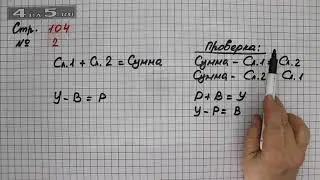 4 da 5.ru
Стр. 104
№ 2
Сл.1 + Сл.2 = Сумма
У - В = Р
Проверка:
Сумма - Сл.1 = Сл.2
Сумма - Сл.2 = Сл.1
Р + В = У
У - Р = В